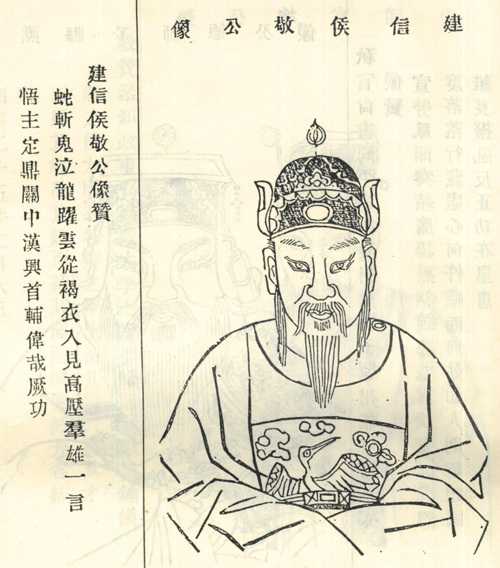 建信侯敬公像
建信侯敬公像贊
蛇斬鬼泣龍躍雲從褐衣入見高壓羣雄一言
悟主定鼎關中漢興首輔偉哉厥功